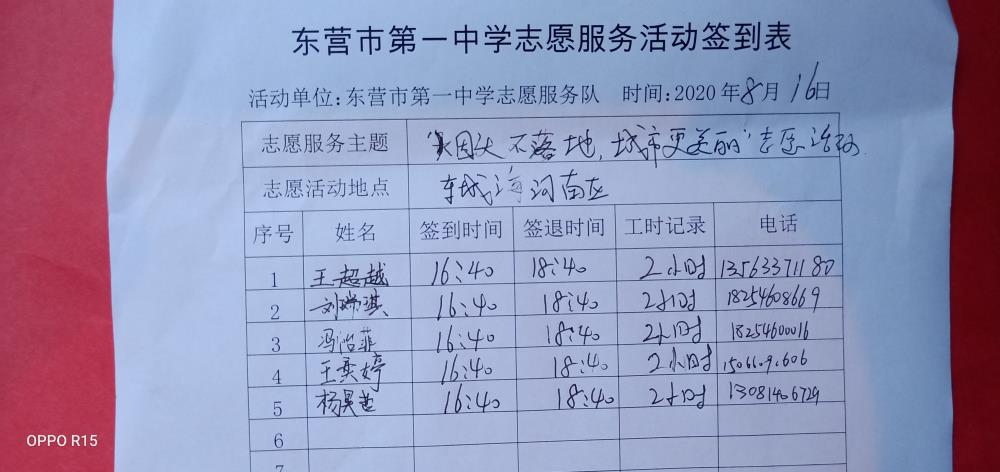 东营市第一中学志愿服务活动签到表
活动单位:东营市第一中学志愿服务队 时间:2020年8月16日
志愿服务主题 “烟头不落地,城市更美丽”志愿活动
志愿活动地点 东城 河南区
序号 姓名 签到时间 签退时间 工时记录 电话
1 王超越 16:40 18:40 2小时 13563371180
2 刘瑞琪 16:40 18:40 2小时 18254608669
3 冯 菲 16:40 18:40 2小时 18254600016
4 王奕婷 16:40 18:40 2小时
5 杨昊 16:40 18:40 2小时 13081406729
6
7
OPPO R15